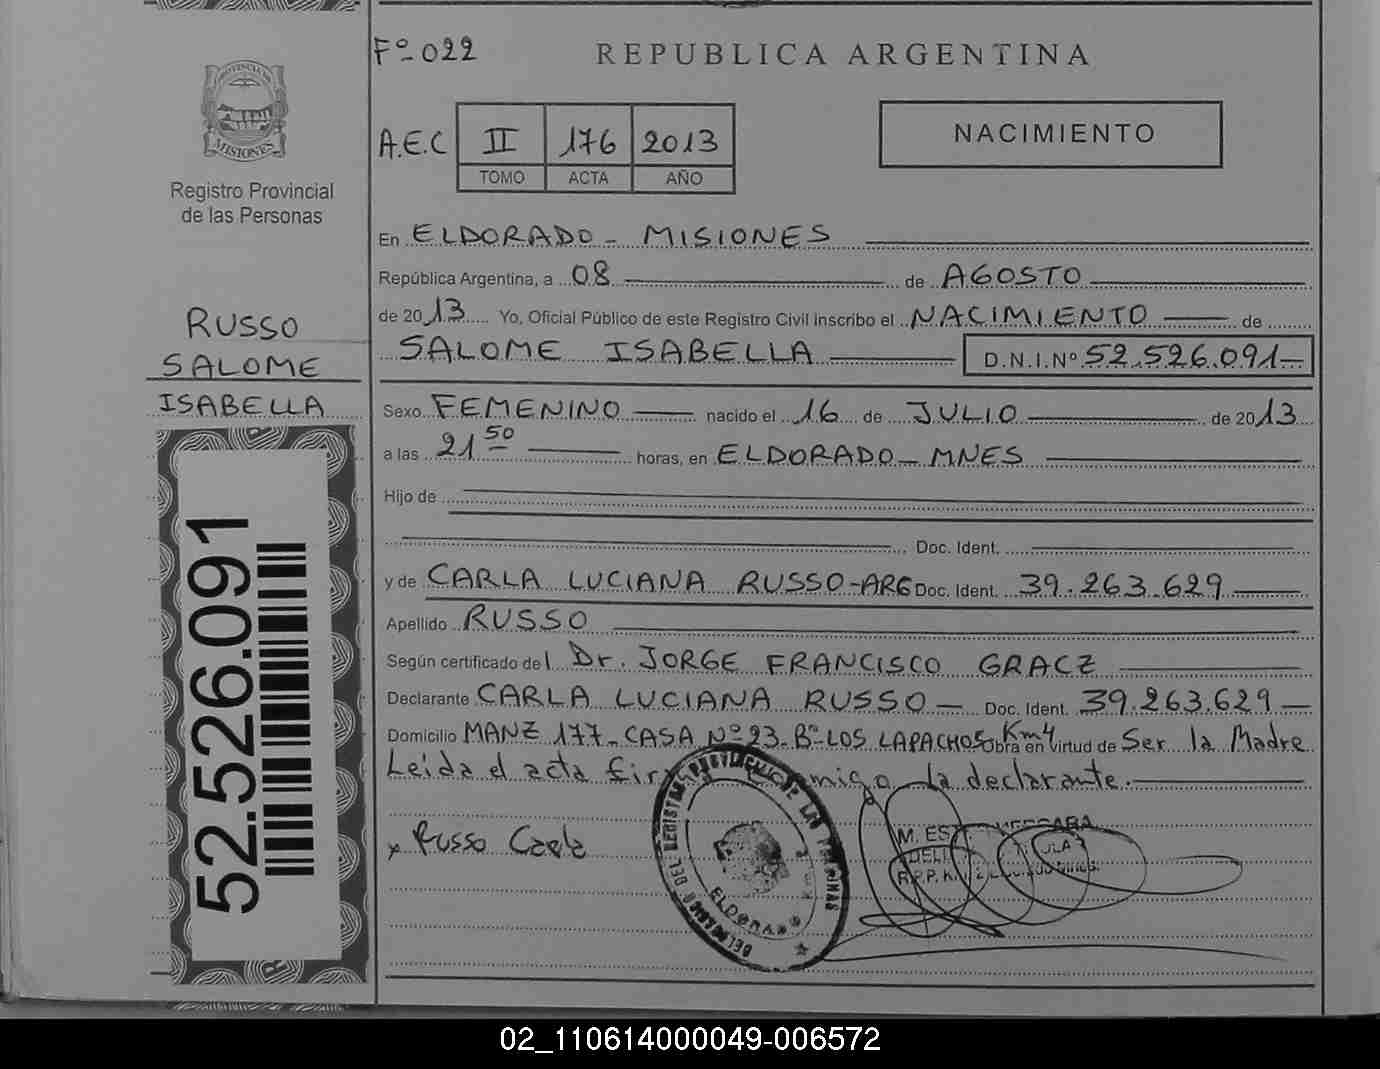 Fº-022
REPUBLICA ARGENTINA
PROVINCIA DE
MISIONES
Registro Provincial
de las Personas
A.E.C II 176 2013
TOMO ACTA AÑO
NACIMIENTO
En ELDORADO - MISIONES
República Argentina, a 08 de AGOSTO
de 2013 Yo, Oficial Público de este Registro Civil inscribo el NACIMIENTO de
SALOME ISABELLA D.N.I.Nº 52.526.091-
RUSSO
SALOME
ISABELLA
Sexo FEMENINO nacido el 16 de JULIO de 2013
a las 21 50 horas, en ELDORADO - MNES
Hijo de
Doc. Ident.
y de CARLA LUCIANA RUSSO-ARG Doc. Ident. 39.263.629
Apellido RUSSO
Según certificado del Dr. JORGE FRANCISCO GRACZ
Declarante CARLA LUCIANA RUSSO - Doc. Ident. 39.263.629 -
Domicilio MANZ 177 - CASA Nº 23 - Bº - LOS LAPACHOS Km4 Obra en Virtud de Ser la Madre
Leida el acta la declarante.
x Russo Carla
ELDORADO
M.
R.P.P.
52.526.091
02_110614000049-006572